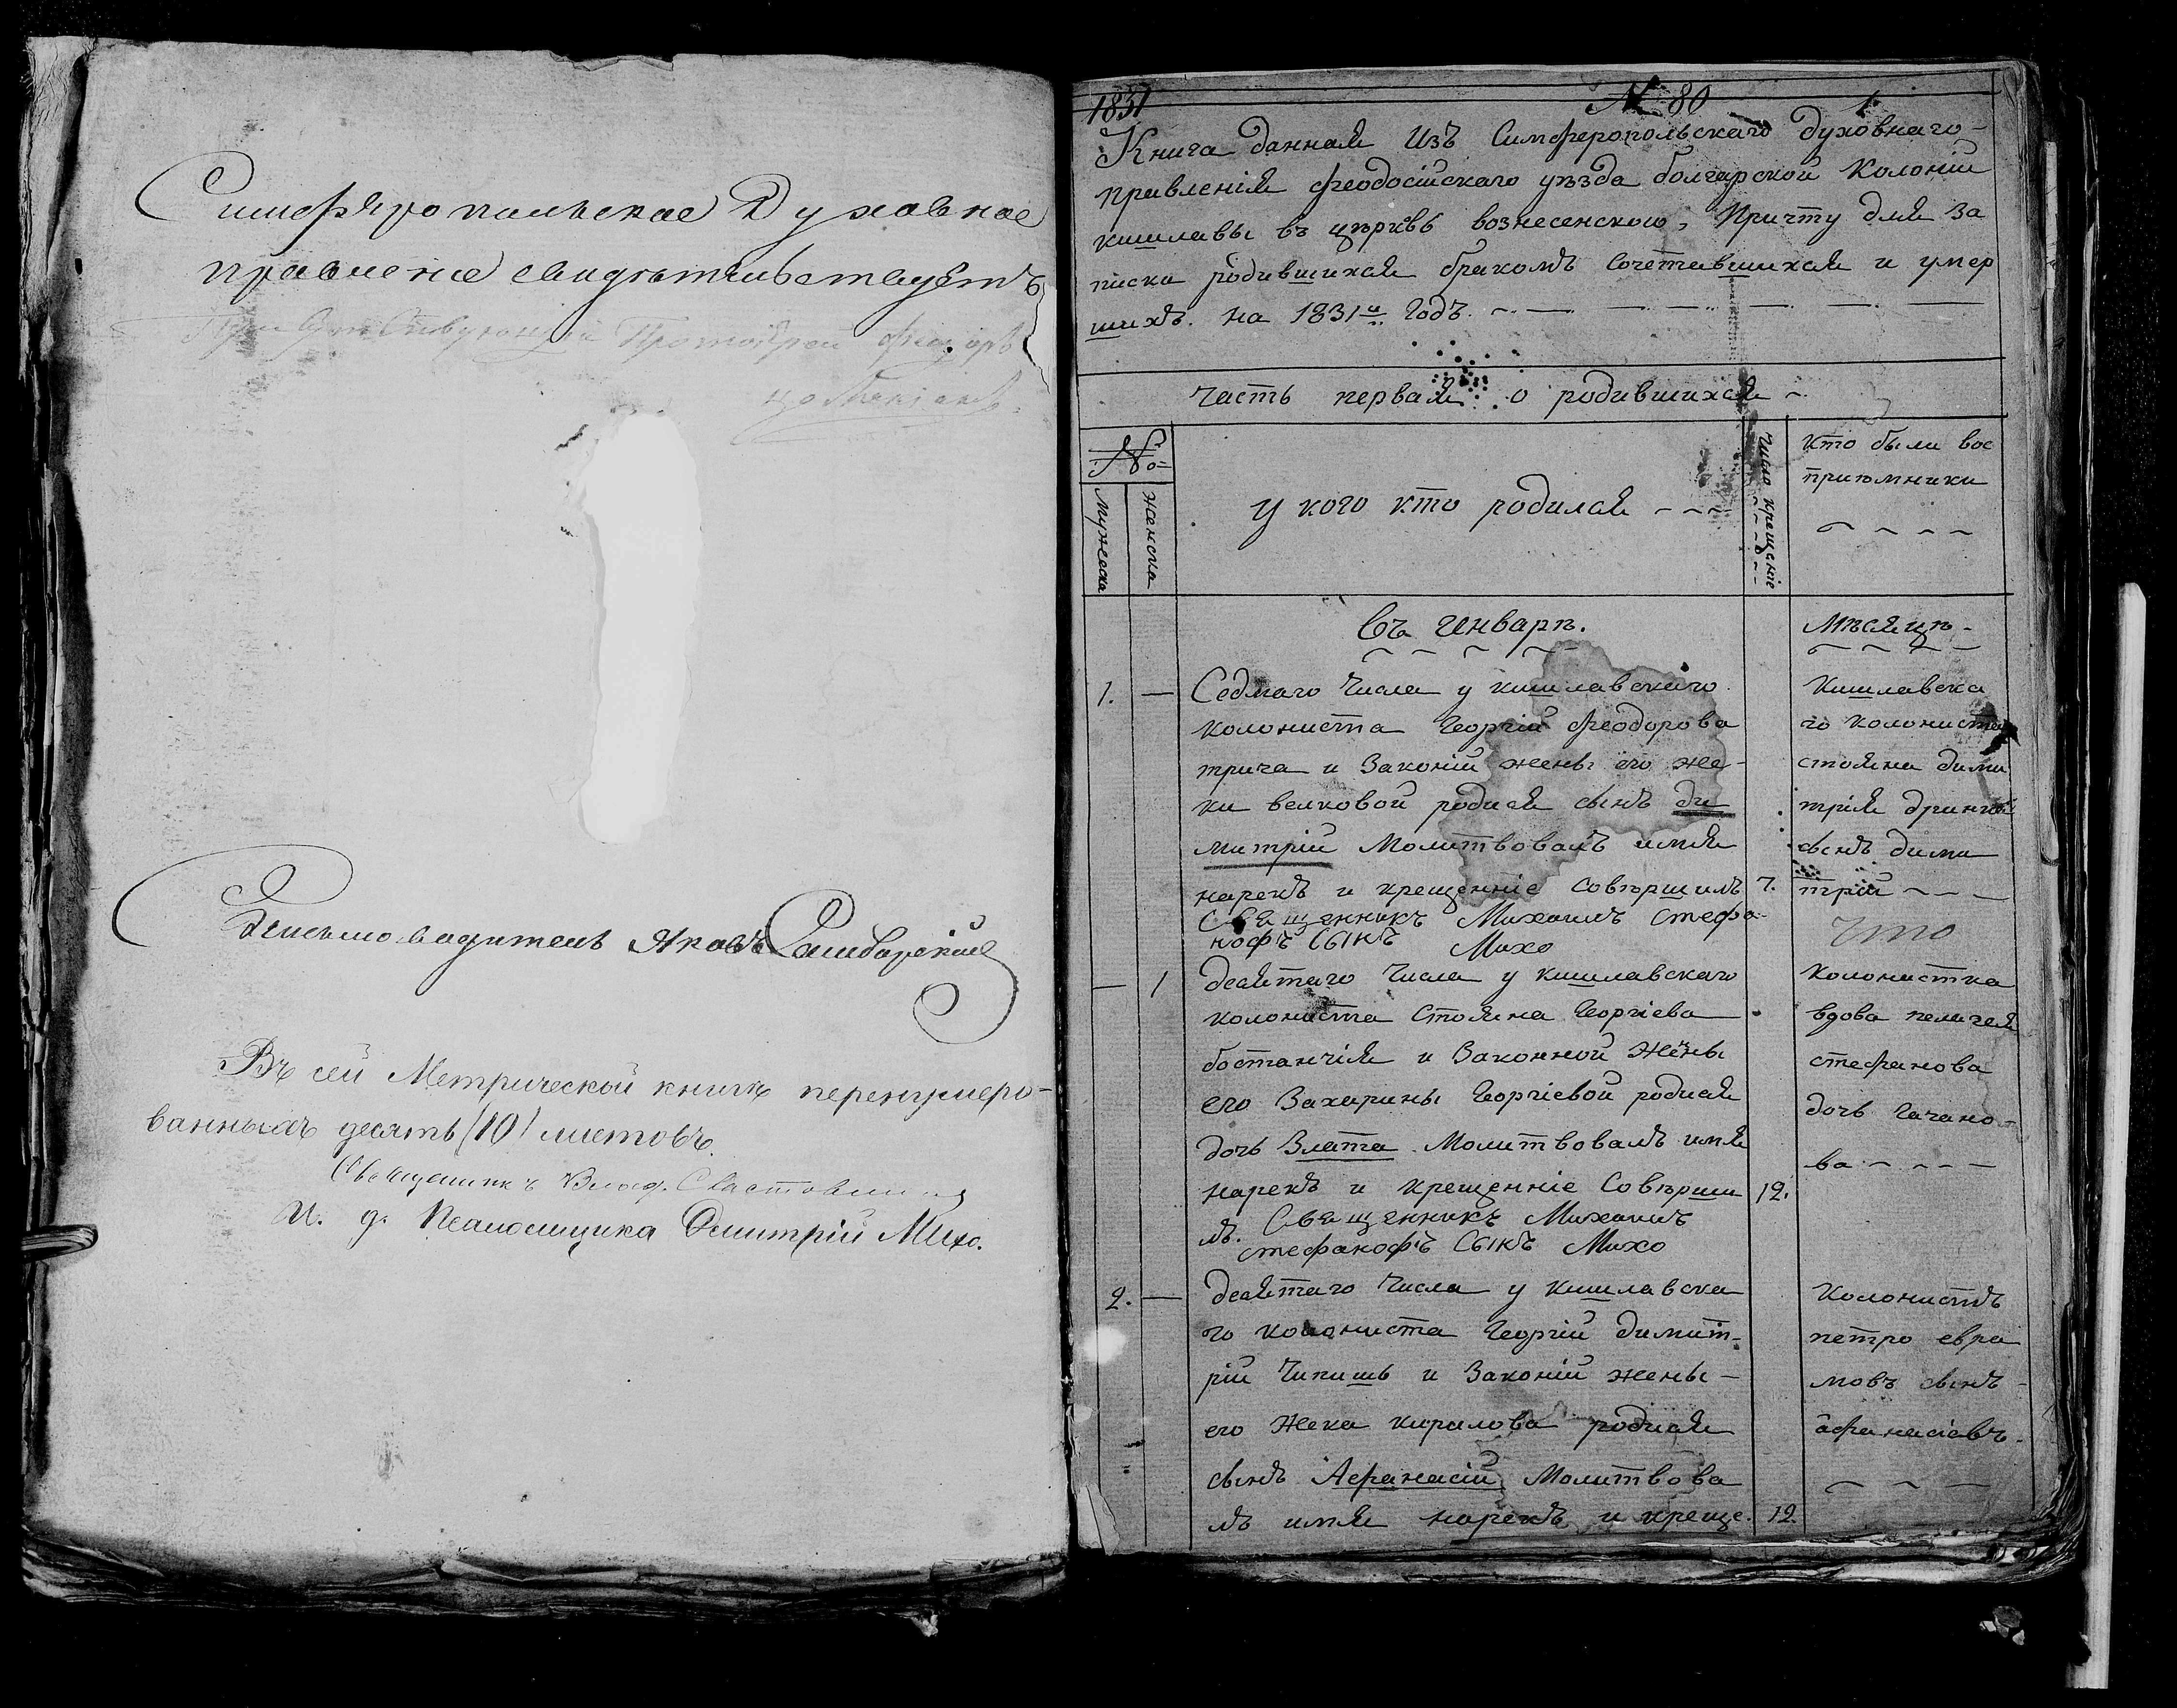 Симферопольское Духовное
правленіе свидѣтельствуетъ
Присутствующій Протоіерей
Письмоводитель Яковъ
Въ сей Метрической книгѣ перенумеро-
ванныхъ десять (10) листовъ.
Священникъ Влад.
И. д. Псаломщика Дмитрій Михо.
1831 № 80 1.
Книга данная Изъ Симферопольскаго духовнаго-
правленія феодосійскаго уѣзда болгарской Колоніи
кишлавы въ церквѣ вознесенскою, Причту для за
писки родившихся бракомъ сочетавшихся и умер
шихъ. на 1831й Годъ.
Часть первая о родившихся
№
Мужеска
Женска
У кого кто родился
Число крещеніе
Кто были вос
пріемники
Въ Генварѣ.
Мѣсяцѣ
1. — Седмаго Числа у кишлавскаго
колониста Георгій феодорова
трича и Законій жены его же-
ки велковой родися сынъ ди
митрій Молитвовалъ имя
нарекъ и крещенніе совѣршилъ 7.
Священникъ Михаилъ стефа-
нофъ Сынъ Михо
Кишлавска
го колониста
стояна дими
трія
сынъ дими
трій
Что
— 1 десятаго Числа у кишлавскаго
колониста Стояна Георгіева
бостанчія и Законной жены
его Захарины Георгіевой родися
дочь Злата Молитвовалъ имя
нарекъ и крещенніе Совѣрши 12.
лъ. Священникъ Михаилъ
стефанофъ Сынъ Михо
Колонистка
вдова пелагея
стефанова
дочь Гагано-
ва
2. — десятаго Числа у кишлавска
го колониста Георгій димит-
рій Чипишь и Законій жены-
его Жека кирилова родися
сынъ Афанасій Молитвова
лъ имя нарекъ и креще. 12
Колонистъ
петро евра
мовъ сынъ
афанасіевъ.